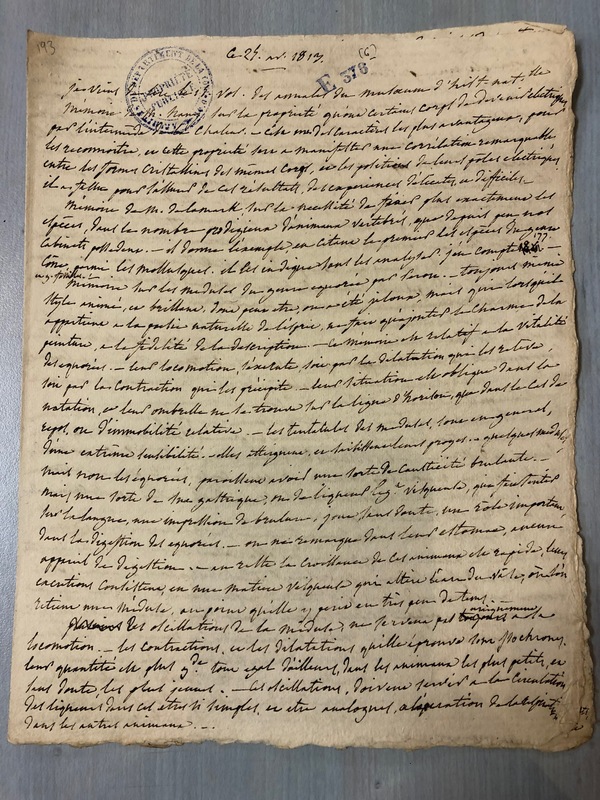 193
Ce 24 nv. 1813. (6)
E 376
DEPARTEMENT DE LA
PROPRIÉTÉ PUBLIQUE
je viens vol. des annales du museum d'hist. nat.elle
mémoire sur la propriété qu'ont certains corps de devenir électriques
par l'intermède chaleur. – c'est un des caractères les plus avantageux, pour
les reconnoitre, et cette propriété a manifesté une corrélation remarquable
entre les formes cristallines des mêmes corps, et les positions de leurs poles electriques
il a fallu pour s'assurer de ces résultats, des expériences délicates, et difficiles.
Mémoire de M. de lamark sur la necessité de fixer plus exactement les
espèces, dans le nombre prodigieux d'animaux vertebrés, que depuis peu nos
cabinets possedent. – il donne l'exemple, en citant le premier les espèces du genre
Cone, parmi les mollusques. il les indique sans les analyser. j'en compte 177
Mémoire sur les meduses du genre equorée par Peron. – toujours même
style animé, et brillant, dont peut etre, on a été jaloux, mais qui lorsqu'il
appartient a la partie naturelle de l'esprit, ne fait qu'ajouter le charme de la
peinture, a la fidélité de la description. – Ce memoire est relatif a la vitalité
des equorées. – leur locomotion, s'exécute soit par la dilatation qui les releve,
soit par la contraction qui les précipite – leur situation est oblique dans la
natation, et leur ombelle ne se trouve sur la ligne d'horizon, que dans le cas de
repos, ou d'immobilité relative. – les tentacules des meduses, sont en general,
d'une extreme sensibilité. – elles atteignent, et saisissent leur proye. – quelques meduses,
mais non les équorées, paraissent avoir une sorte de causticité brulante. –
mais une sorte de suc gastrique, ou de liqueur visqueuse, que fait
sur la langue, une impression de brulure, joue sans doute, un role important
dans la digestion des equorées. – on ne remarque dans leur estomac, aucun
appareil de digestion. – au reste la croissance de ces animaux est rapide, leurs
excrétions consistent, en une matière visqueuse qui altère l'eau du vase, où l'on
retient une méduse, au point qu'elle y périt en très peu de tems.
les oscillations de la méduse, ne servent pas uniquement a la
locomotion. – les contractions, et les dilatations qu'elle éprouve sont isochrones.
leur quantité est plus gde. tout egal d'ailleurs, dans les animaux les plus petits, et
sans doute, les plus jeunes. – Ces oscillations, doivent servir a la circulation
des liqueurs dans ces etres si simples, et etre analogues, a l'opération de la
dans les autres animaux. –